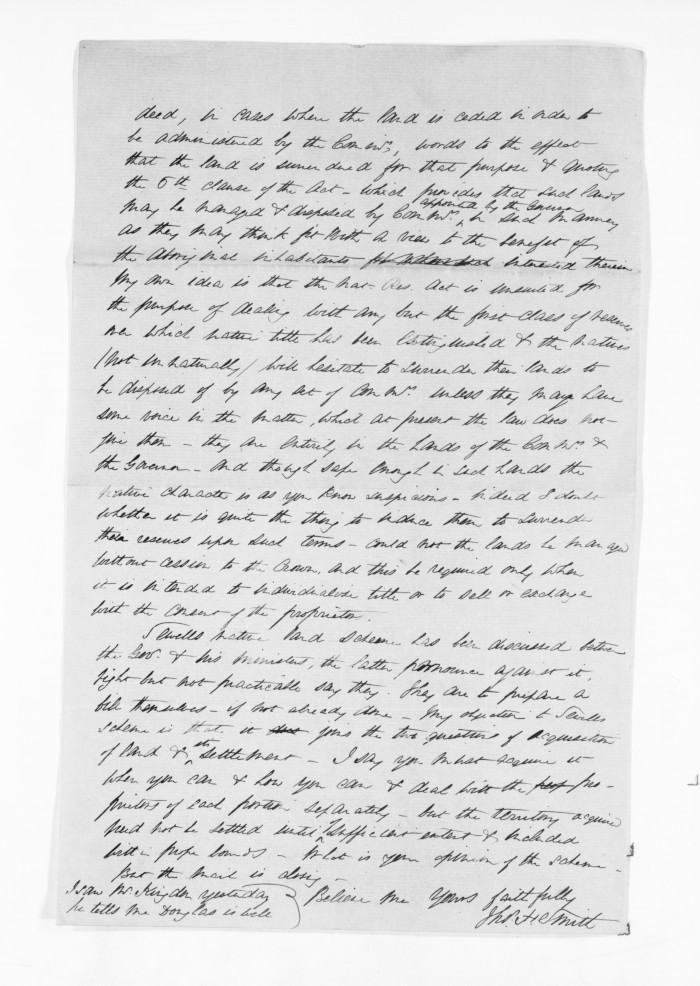 deed, in cases where the land is ceded in order to
be administered by the Comrs, words to the effect
that the land is surrendered for that purpose & quoting
the 6th clause of the Act - which provides that such lands
appointed by the Governor
may be managed & disposed by Comrs in such manner
as they may think fit with a view to the benefit of
the Aboriginal inhabitants interested therein
My own idea is that the Nat. Res. Act is unsuited for
the purpose of dealing with any but the first class of reserves
over which native title has been extinguished & the natives
(not unnaturally) will hesitate to surrender their lands to
be disposed of by any act of Comrs unless they may have
some voice in the matter, which at present the law does not
give them - they are entirely in the hands of the Comrs &
the Governor - and though safe enough in such hands the
native character is as you know suspicious - indeed I doubt
whether it is quite the thing to induce them to surrender
their reserves upon such terms - could not the lands be managed
without cession to the Crown, and this be required only when
it is intended to individualize title or to sell or exchange
with the consent of the proprietors.
Sewells native land scheme has been discussed between
the Govr. & his ministers, the latter pronounce against it,
right but not practicable say they. They are to prepare a
bill themselves - if not already done - My objection to Sewells
scheme is that it joins the two questions of acquisition
of land & its settlement - I say you must acquire it
when you can & how you can & deal with the pro-
prietors of each portion separately - but the territory acquired
need not be settled until sufficient extent & included
within proper bounds - What is your opinion of the scheme -
But the mail is closing -
Believe me Yours faithfully
Thos. H Smith
I saw Mr. Kingdon yesterday
he tells me Douglas is well